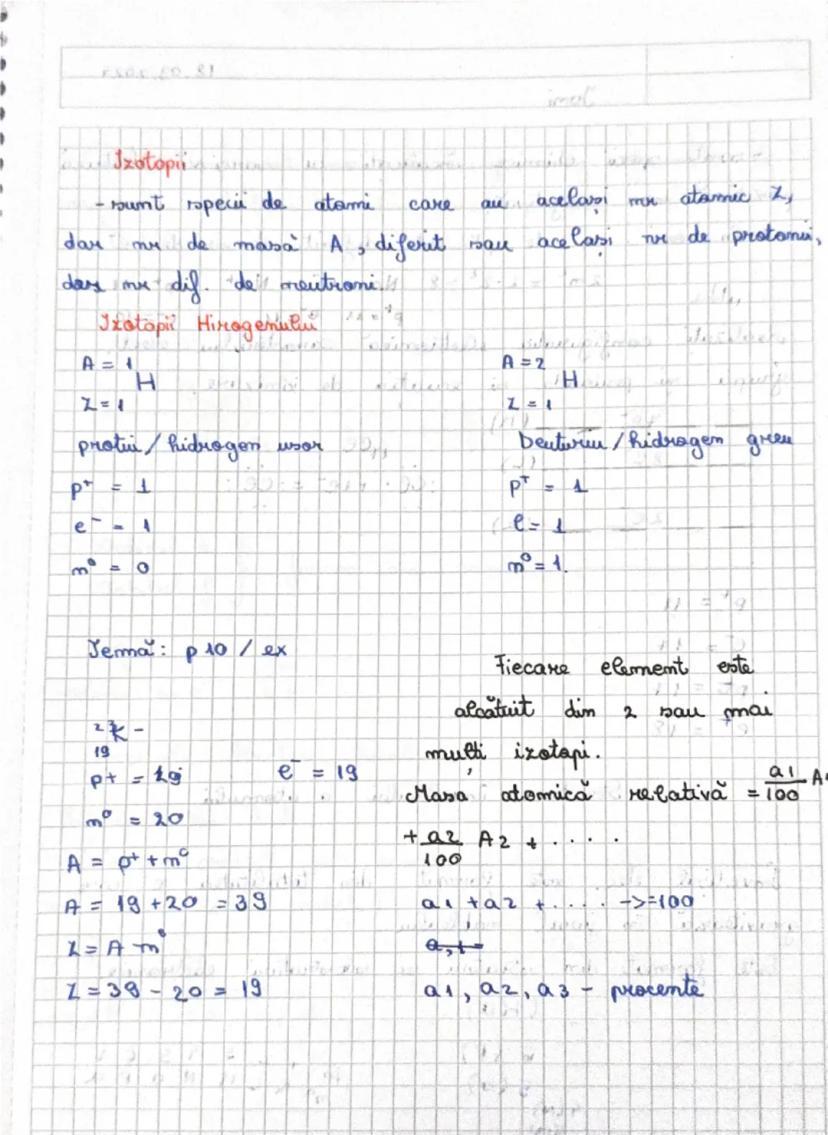 Izotopii
- sunt specii de atomi care au același nr atomic Z,
dar nr de masă A, diferit sau același nr de protoni,
dar nr dif. de neutroni.
Izotopii Hirogenului
A = 1
H
Z = 1
protiu / hidrogen usor
p+ = 1
e- = 1
n0 = 0
A = 2
H
Z = 1
Deuteriu / hidrogen greu
p+ = 1
e = 1
n0 = 1.
Temă: p 10 / ex
K -
19
p+ = 19
e- = 19
n0 = 20
A = p+ + n0
A = 19 + 20 = 39
Z = A - n0
Z = 39 - 20 = 19
Fiecare element este
alcătuit din 2 sau mai
mulți izotopi.
Masa atomică relativă = a1/100 A1
+ a2/100 A2 + ....
a1 + a2 + .... ->=100
a1, a2, a3 - procente